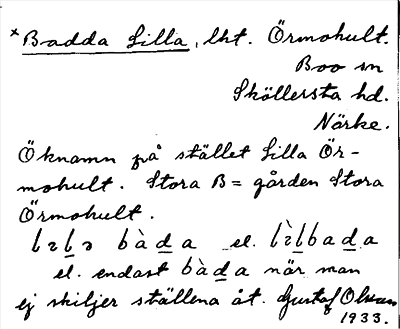 *Badda Lilla, lht. Örmohult.
Boo sn
Sköllersta hd.
Närke.
Öknamn på stället Lilla Ör-
mohult. Stora B = gården Stora
Örmohult.
bàda el.
el. endast bàda när man
ej skiljer ställena åt. Gustaf Olsson
1933.